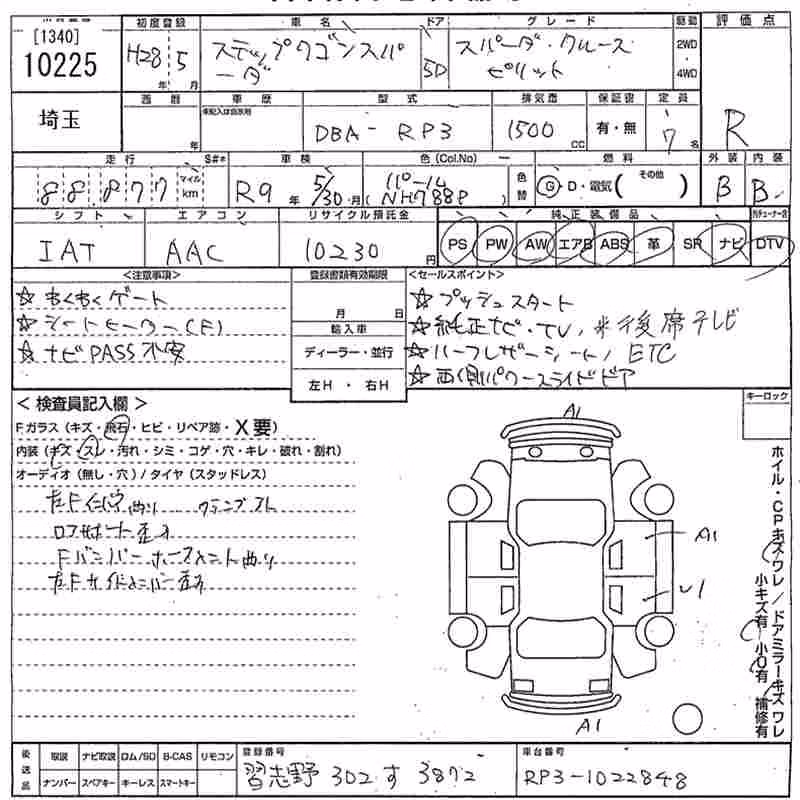 [1340]
10225
初度登録 車名 ドア グレード 駆動 評価点
H28年 5月 ステップワゴンスパーダ 5D スパーダ・クールスピリット 2WD・4WD R
埼玉
西暦 年 車歴 型式 排気量 保証書 定員
車歴記入は自家用
DBA-RP3 1500cc 有・無 7名
走行 S#* 車検 色(Col.No) 色替 燃料 外装 内装
88877 マイル km R9年 5/30月 パール (NH788P) G・D・電気( その他 ) B B
シフト エアコン リサイクル預託金 純正装備品
IAT AAC 10230円 PS PW AW エアB ABS 革 SR ナビ DTV
<注意事項> 登録書類有効期限 <セールスポイント>
☆もくもくゲート
☆シートヒーター(F)
☆ナビPASS不要
月 日
輸入車
ディーラー・並行
左H・右H
☆プッシュスタート
☆純正ナビ・TV, *後席テレビ
☆ハーフレザーシート/ETC
☆両側パワースライドドア
<検査員記入欄> キーロック
Fガラス(キズ・飛石・ヒビ・リペア跡・X要)
内装(キズ・スレ・汚れ・シミ・コゲ・穴・キレ・破れ・割れ)
オーディオ(無し・穴)/タイヤ(スタッドレス)
左Fインパネ曲り クランプ
ロアサポート歪み
Fバンパーホースメント曲り
左Fサイドメンバー歪み
A1
A1
U1
A1
ホイル・CPキズワレ/ドアミラーキズワレ
小キズ有 小U有 補修有
後送品 取説 ナビ取説 ロム/SD B-CAS リモコン
ナンバー スペアキー キーレス スマートキー
登録番号 習志野 302 す 3872
車台番号 RP3-1022848